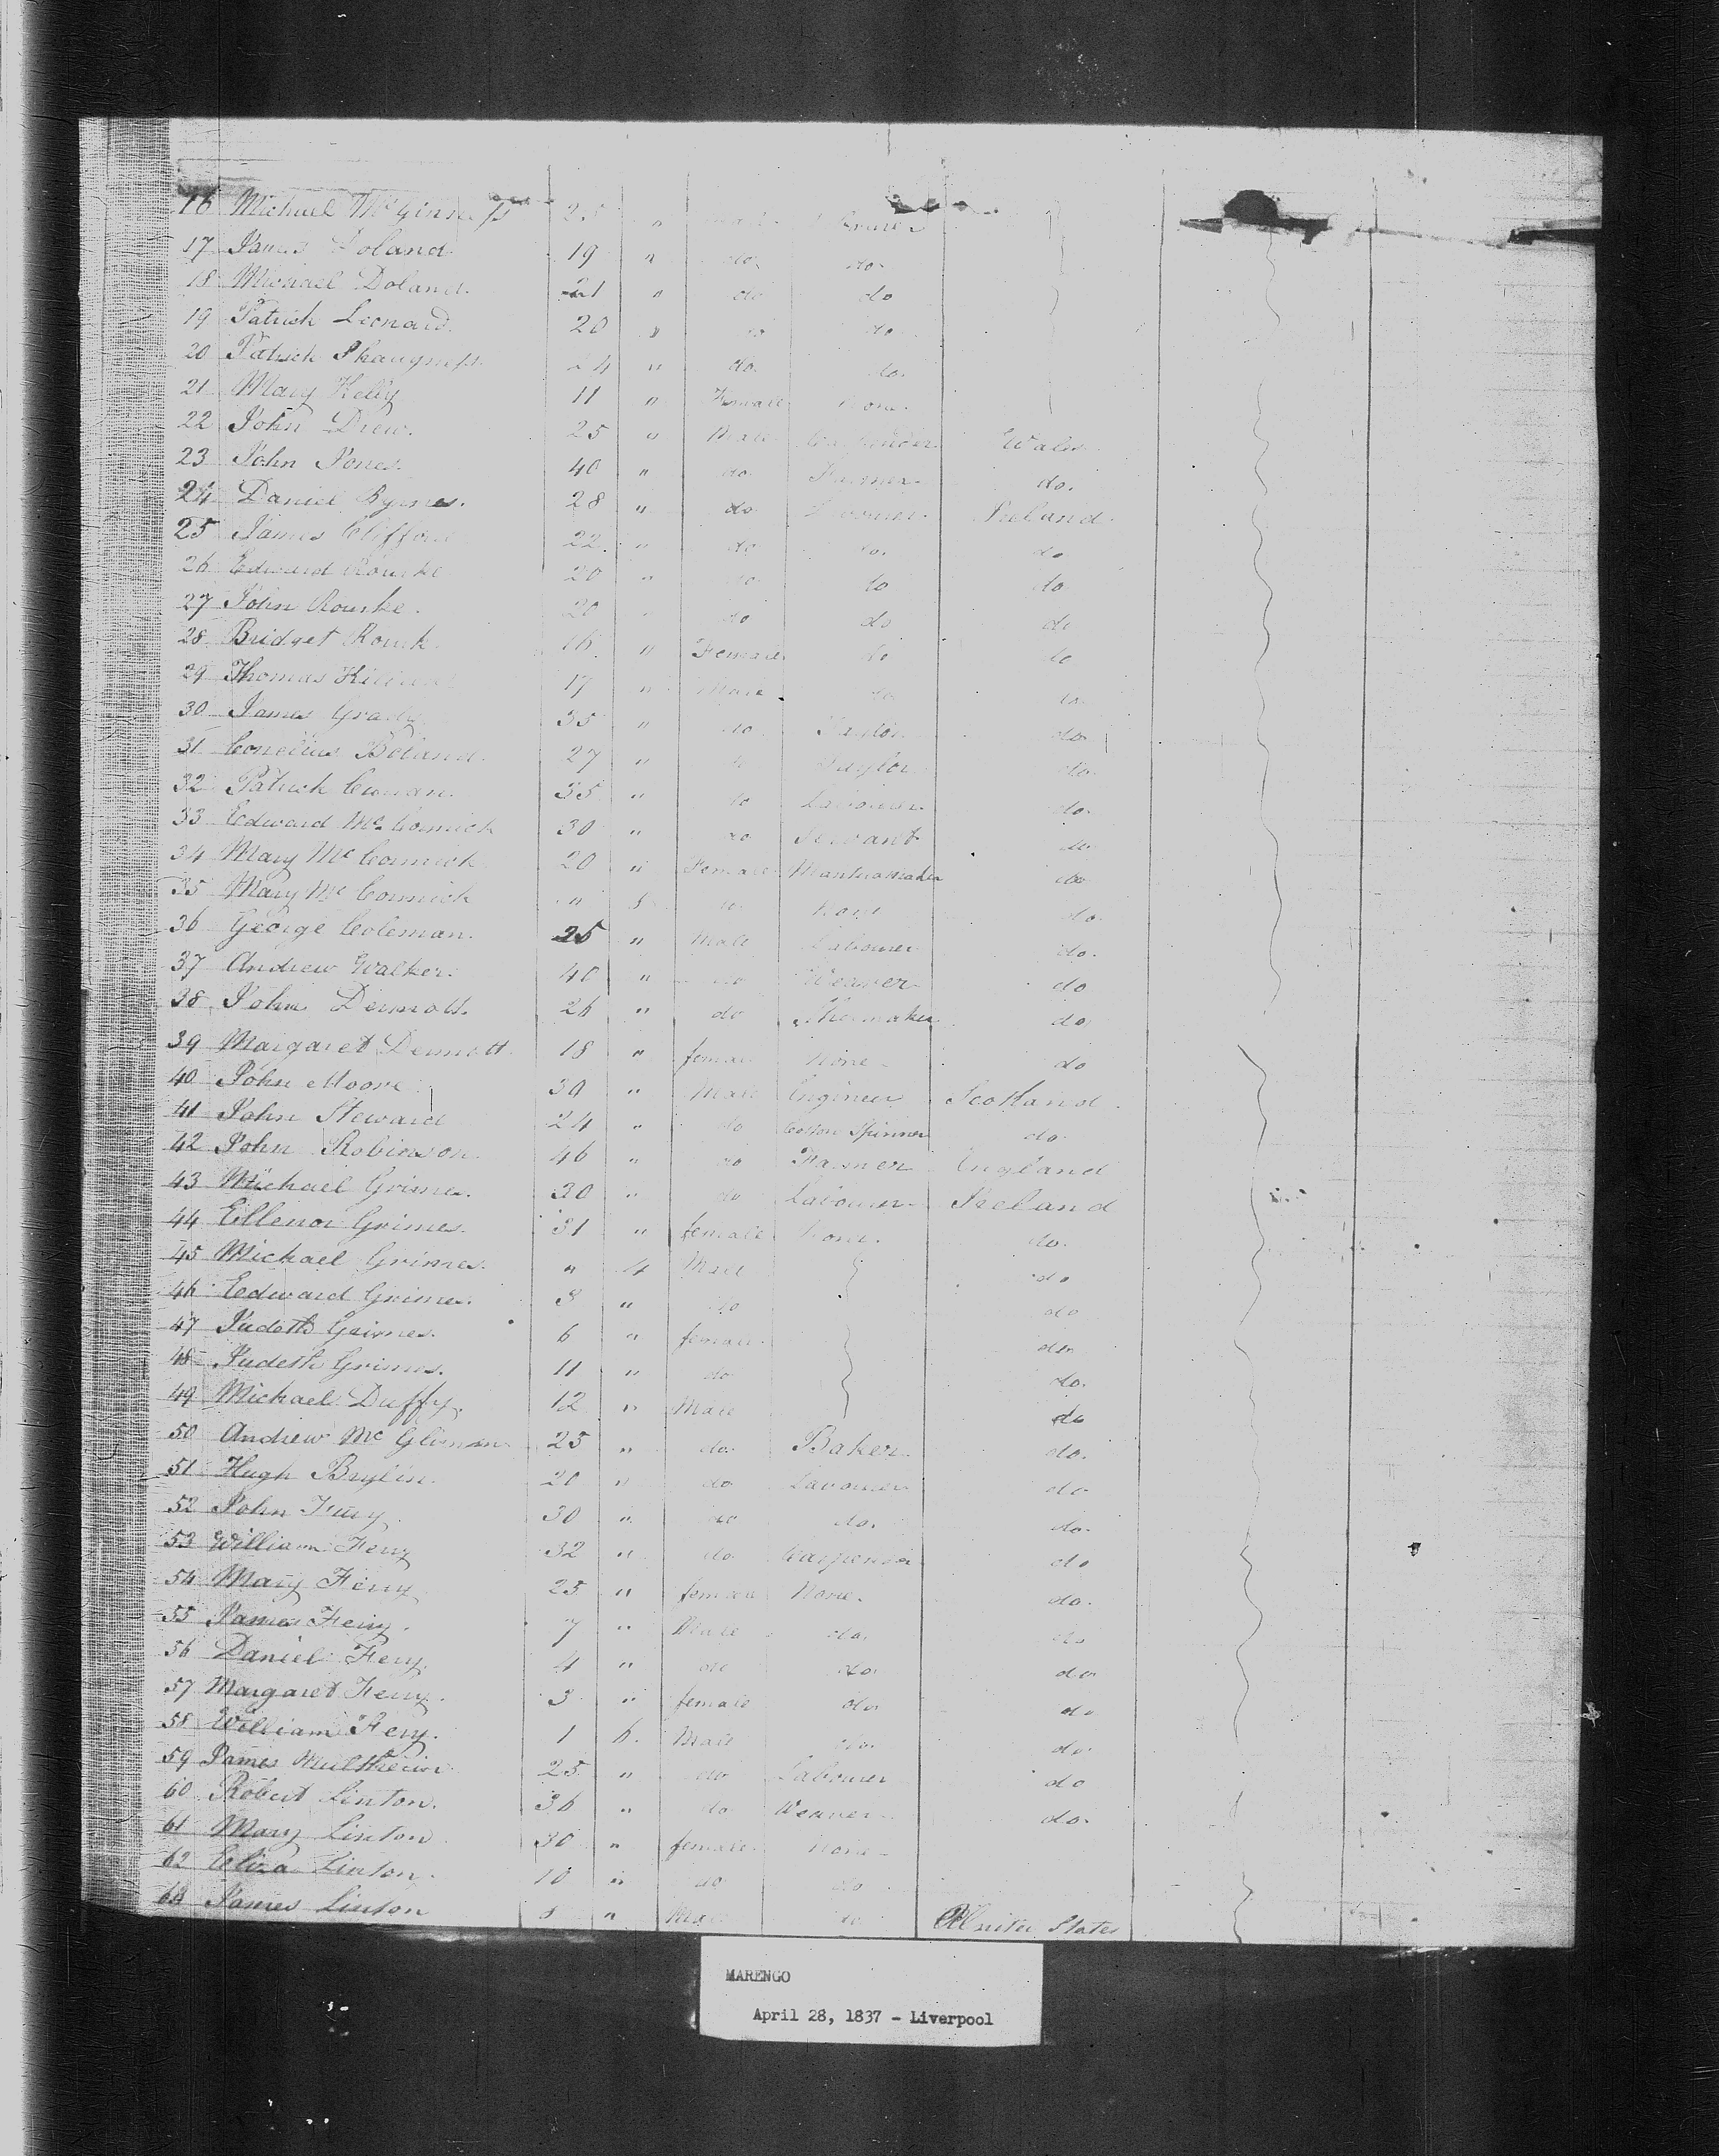 16 Michael McGinness 2 " 
17 James Doland 19 " do do
18 Michael Doland. 21 " do do
19 Patrick Leonard. 20 " do do
20 Patrick Shaugness. 4 " do. do.
21 Mary Kelly 11 " Female None.
22 John Drew. 25 " Male Wales
23 John Jones. 40 " do. Farmer. do.
24 Daniel Byrnes. 28 " do Ireland.
25 James Cliffor 22. " do do. do
26 Edward Rourke 20 " do do do.
27 John Rourke. 20 " do do do
28 Bridget Rourk 16. " Female do do
29 Thomas 17 " Male do do.
30 James Grady 35 " do. Taylor. do.
31 Conelius Boland. 27 " do Taylor do.
32 Patrick 35 " do Labourer do.
33 Edward McCormick 30 " do Servant do
34 Mary McCormick 20 " Female Mantuamaker do
35 Mary McCormick " 8 do None do.
36 George Coleman. 25 " Male Labourer do.
37 Andrew Walker. 40 " do Weaver do
38 John Dermott. 26 " do Shoemaker do
39 Margaret Dermott. 18 " female None do
40 John Moore 39 " Male Engineer Scotland
41 John Steward 24 " do Cotton Spinner do.
42 John Robinson. 46 " do Farmer England
43 Michael Grimes. 30 " do Labourer Ireland
44 Ellenor Grimes. 31 " female None. do.
45 Michael Grimes. " 4 Male do
46 Edward Grimes. 8 " do do
47 Judeth Grimes. 6 " female. do
48 Judeth Grimes. 11 " do do.
49 Michael Duffy. 12 " Male do
50 Andrew Mc 25 " do. Baker do.
51 Hugh 20 " do Labourer do
52 John 30 " do do. do.
53 William Ferry 32 " do Carpenter do
54 Mary Ferry 25 " female None. do.
55 James Ferry. 7 " Male do. do
56 Daniel Fery. 4 " do do. do
57 Margaret Ferry. 3 " female do do
58 William Fery. 1 6. Male do. do.
59 James 25 " do Labourer do
60 Robert Linton. 36 " do Weaver do.
61 Mary Linton 30 " female None
62 Eliza Linton. 10 " do do
63 James Linton 8 " Male do United States
MARENGO
April 28, 1837 - Liverpool